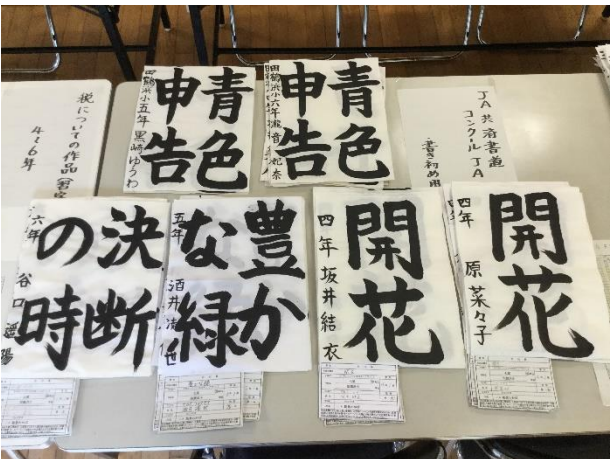 税についての作品(習字)
4~6年
青色
申告
田鶴浜小五年 黒崎ゆうわ
青色
申告
田鶴浜小六年
JA共済書道
コンクールJA
書き初め用
決断
の時
六年 谷口
豊か
な緑
五年 酒井
開花
四年 坂井結衣
開花
四年 原菜々子